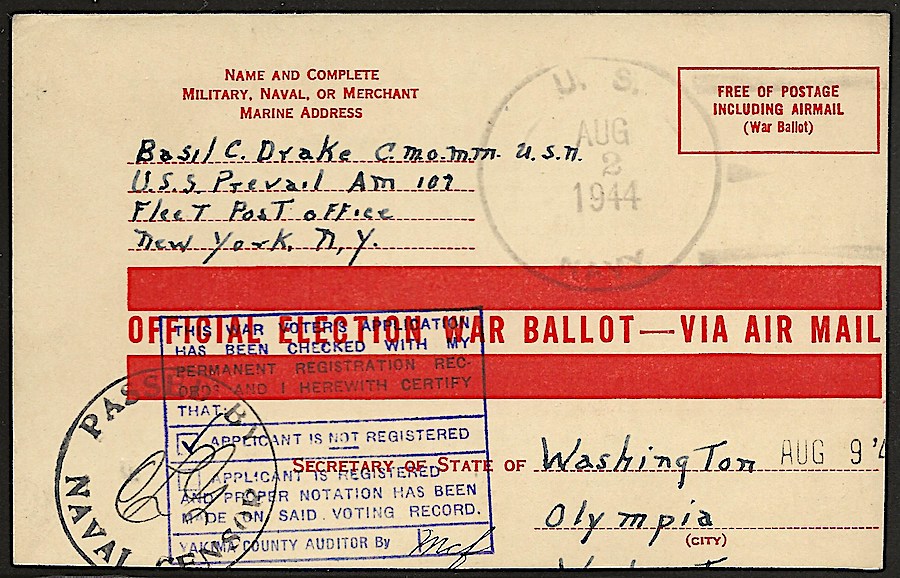 NAME AND COMPLETE
MILITARY, NAVAL, OR MERCHANT
MARINE ADDRESS
Basil C. Drake C.m.o.m.m. U.S.N.
U.S.S. Prevail Am 107
Fleet Post office
New York, N.Y.
U. S.
AUG
2
1944
NAVY
FREE OF POSTAGE
INCLUDING AIRMAIL
(War Ballot)
OFFICIAL ELECTION WAR BALLOT—VIA AIR MAIL
THIS WAR VOTER'S APPLICATION
HAS BEEN CHECKED WITH MY
PERMANENT REGISTRATION REC-
ORDS AND I HEREWITH CERTIFY
THAT:
APPLICANT IS NOT REGISTERED
APPLICANT IS REGISTERED
AND PROPER NOTATION HAS BEEN
MADE ON SAID VOTING RECORD.
YAKIMA COUNTY AUDITOR By
PASSED BY
NAVAL CENSOR
SECRETARY OF STATE OF Washington AUG 9 '4
Olympia
(CITY)